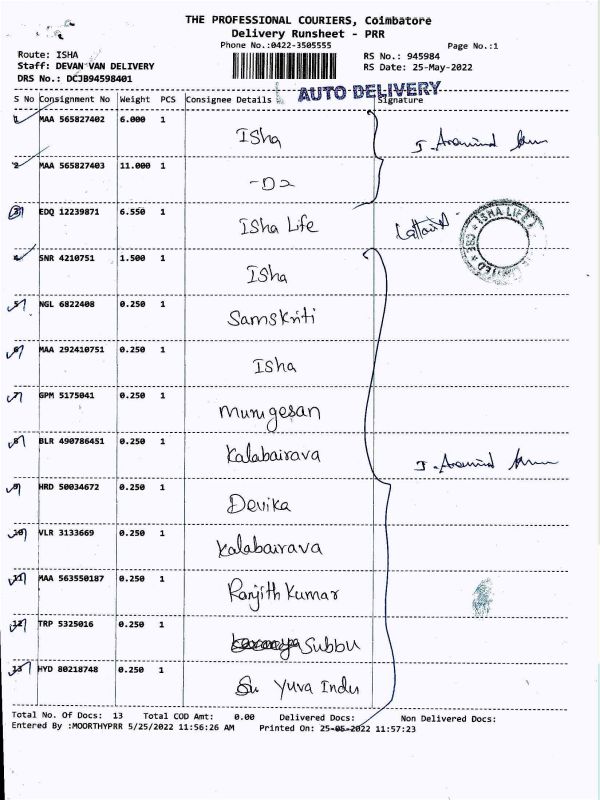 THE PROFESSIONAL COURIERS, Coimbatore
Delivery Runsheet - PRR
Phone No.:0422-3505555
Page No.:1
Route: ISHA
RS No.: 945984
Staff: DEVAN VAN DELIVERY
RS Date: 25-May-2022
DRS No.: DCJB94598401
AUTO DELIVERY
S No Consignment No Weight PCS Consignee Details Signature
1 MAA 565827402 6.000 1
Isha
J. Aravind
2 MAA 565827403 11.000 1
-D2
3 EDQ 12239871 6.550 1
Isha Life
ISHA LIFE
CBE
4 SNR 4210751 1.500 1
Isha
5 NGL 6822408 0.250 1
Samskriti
6 MAA 292410751 0.250 1
Isha
7 GPM 5175041 0.250 1
Murugesan
8 BLR 490786451 0.250 1
Kalabairava
J. Aravind
9 HRD 50034672 0.250 1
Devika
10 VLR 3133669 0.250 1
Kalabairava
11 MAA 563550187 0.250 1
Ranjith Kumar
12 TRP 5325016 0.250 1
Subbu
13 HYD 80218748 0.250 1
Yuva Indu
Total No. Of Docs: 13 Total COD Amt: 0.00 Delivered Docs: Non Delivered Docs:
Entered By :MOORTHYPRR 5/25/2022 11:56:26 AM Printed On: 25-05-2022 11:57:23